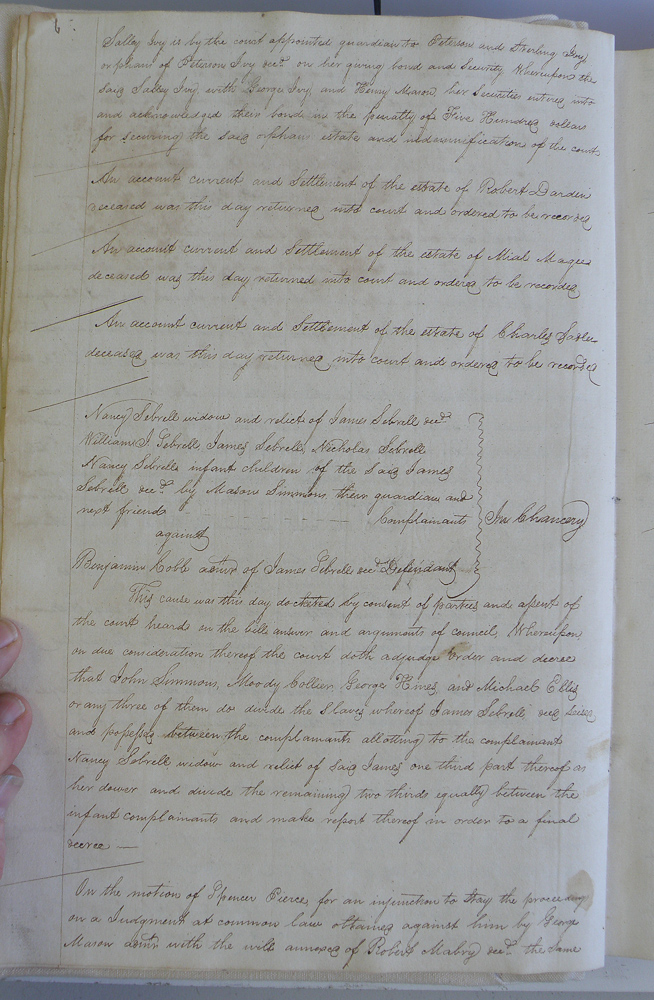 6
Salley Ivy is by the court appointed guardian to Peterson and Sterling Ivy
orphans of Peterson Ivy decd. on her giving bond and Security Whereupon the
said Salley Ivy with George Ivy and Henry Mason her Securities entered into
and acknowledged their bond in the penalty of Five Hundred dollars
for securing the said orphans estate and indemnification of the court
An account current and Settlement of the estate of Robert Dardin
deceased was this day returned into court and ordered to be recorded
An account current and Settlement of the estate of Micah Magee
deceased was this day returned into court and ordered to be recorded
An account current and Settlement of the estate of Charles
deceased was this day returned into court and ordered to be recorded
Nancy Sebrell widow and relict of James Sebrell decd.
William J Sebrell, James Sebrell, Nicholas Sebrell
Nancy Sebrell infant children of the said James
Sebrell decd. by Mason Simmons their guardian and
next friend Complainants In Chancery
against
Benjamin Cobb admr of James Sebrell decd. Defendant
This cause was this day docketed by consent of parties and assent of
the court heard on the bill answer and arguments of council, Whereupon
on due consideration thereof the court doth adjudge order and decree
that John Simmons, Moody Collier, George Hines, and Michael Ellis
or any three of them do divide the slaves whereof James Sebrell decd seised
and possessd between the complainants allotting to the complainant
Nancy Sebrell widow and relict of said James one third part thereof as
her dower and divide the remaining two thirds equally between the
infant complainants and make report thereof in order to a final
decree —
On the motion of Spencer Pierce for an injunction to stay the proceedings
on a Judgment at common law obtained against him by George
Mason admr with the will annexed of Robert Mabry decd. the same